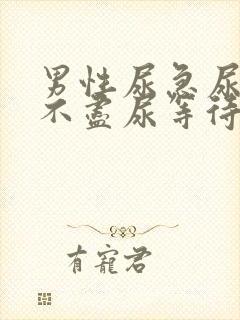 男性尿急尿
不尽尿等待
有寵君